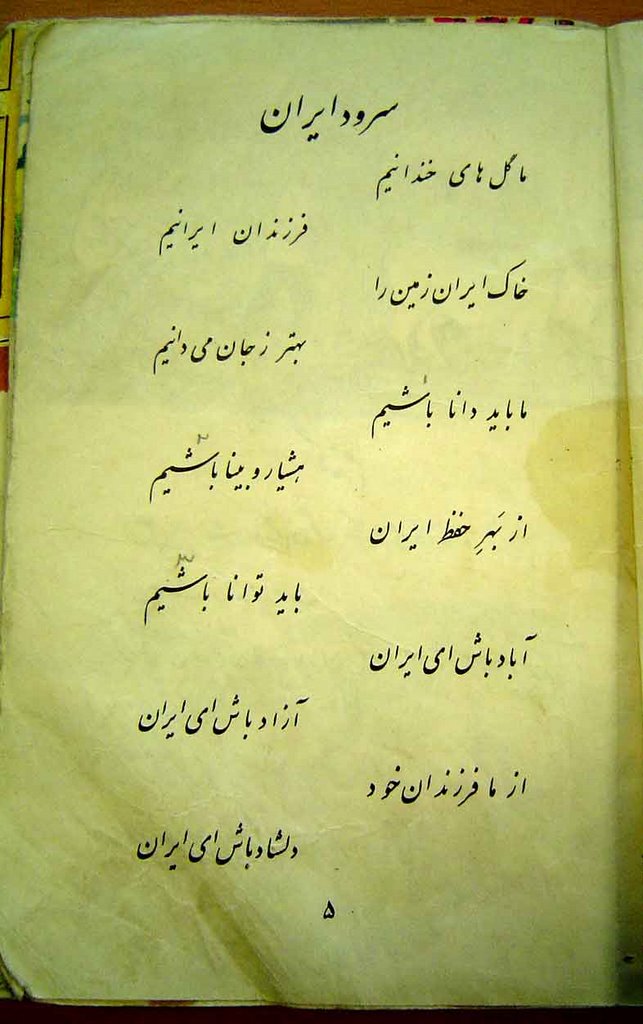 سرود ایران
ما گل های خندانیم
فرزندان ایرانیم
خاک ایران زمین را
بهتر ز جان می دانیم
ما باید دانا باشیم
۱
هشیار و بینا باشیم
۲
از بَهرِ حفظ ایران
باید توانا باشیم
۳
آباد باش ای ایران
آزاد باش ای ایران
از ما فرزندان خود
دلشاد باش ای ایران
۵